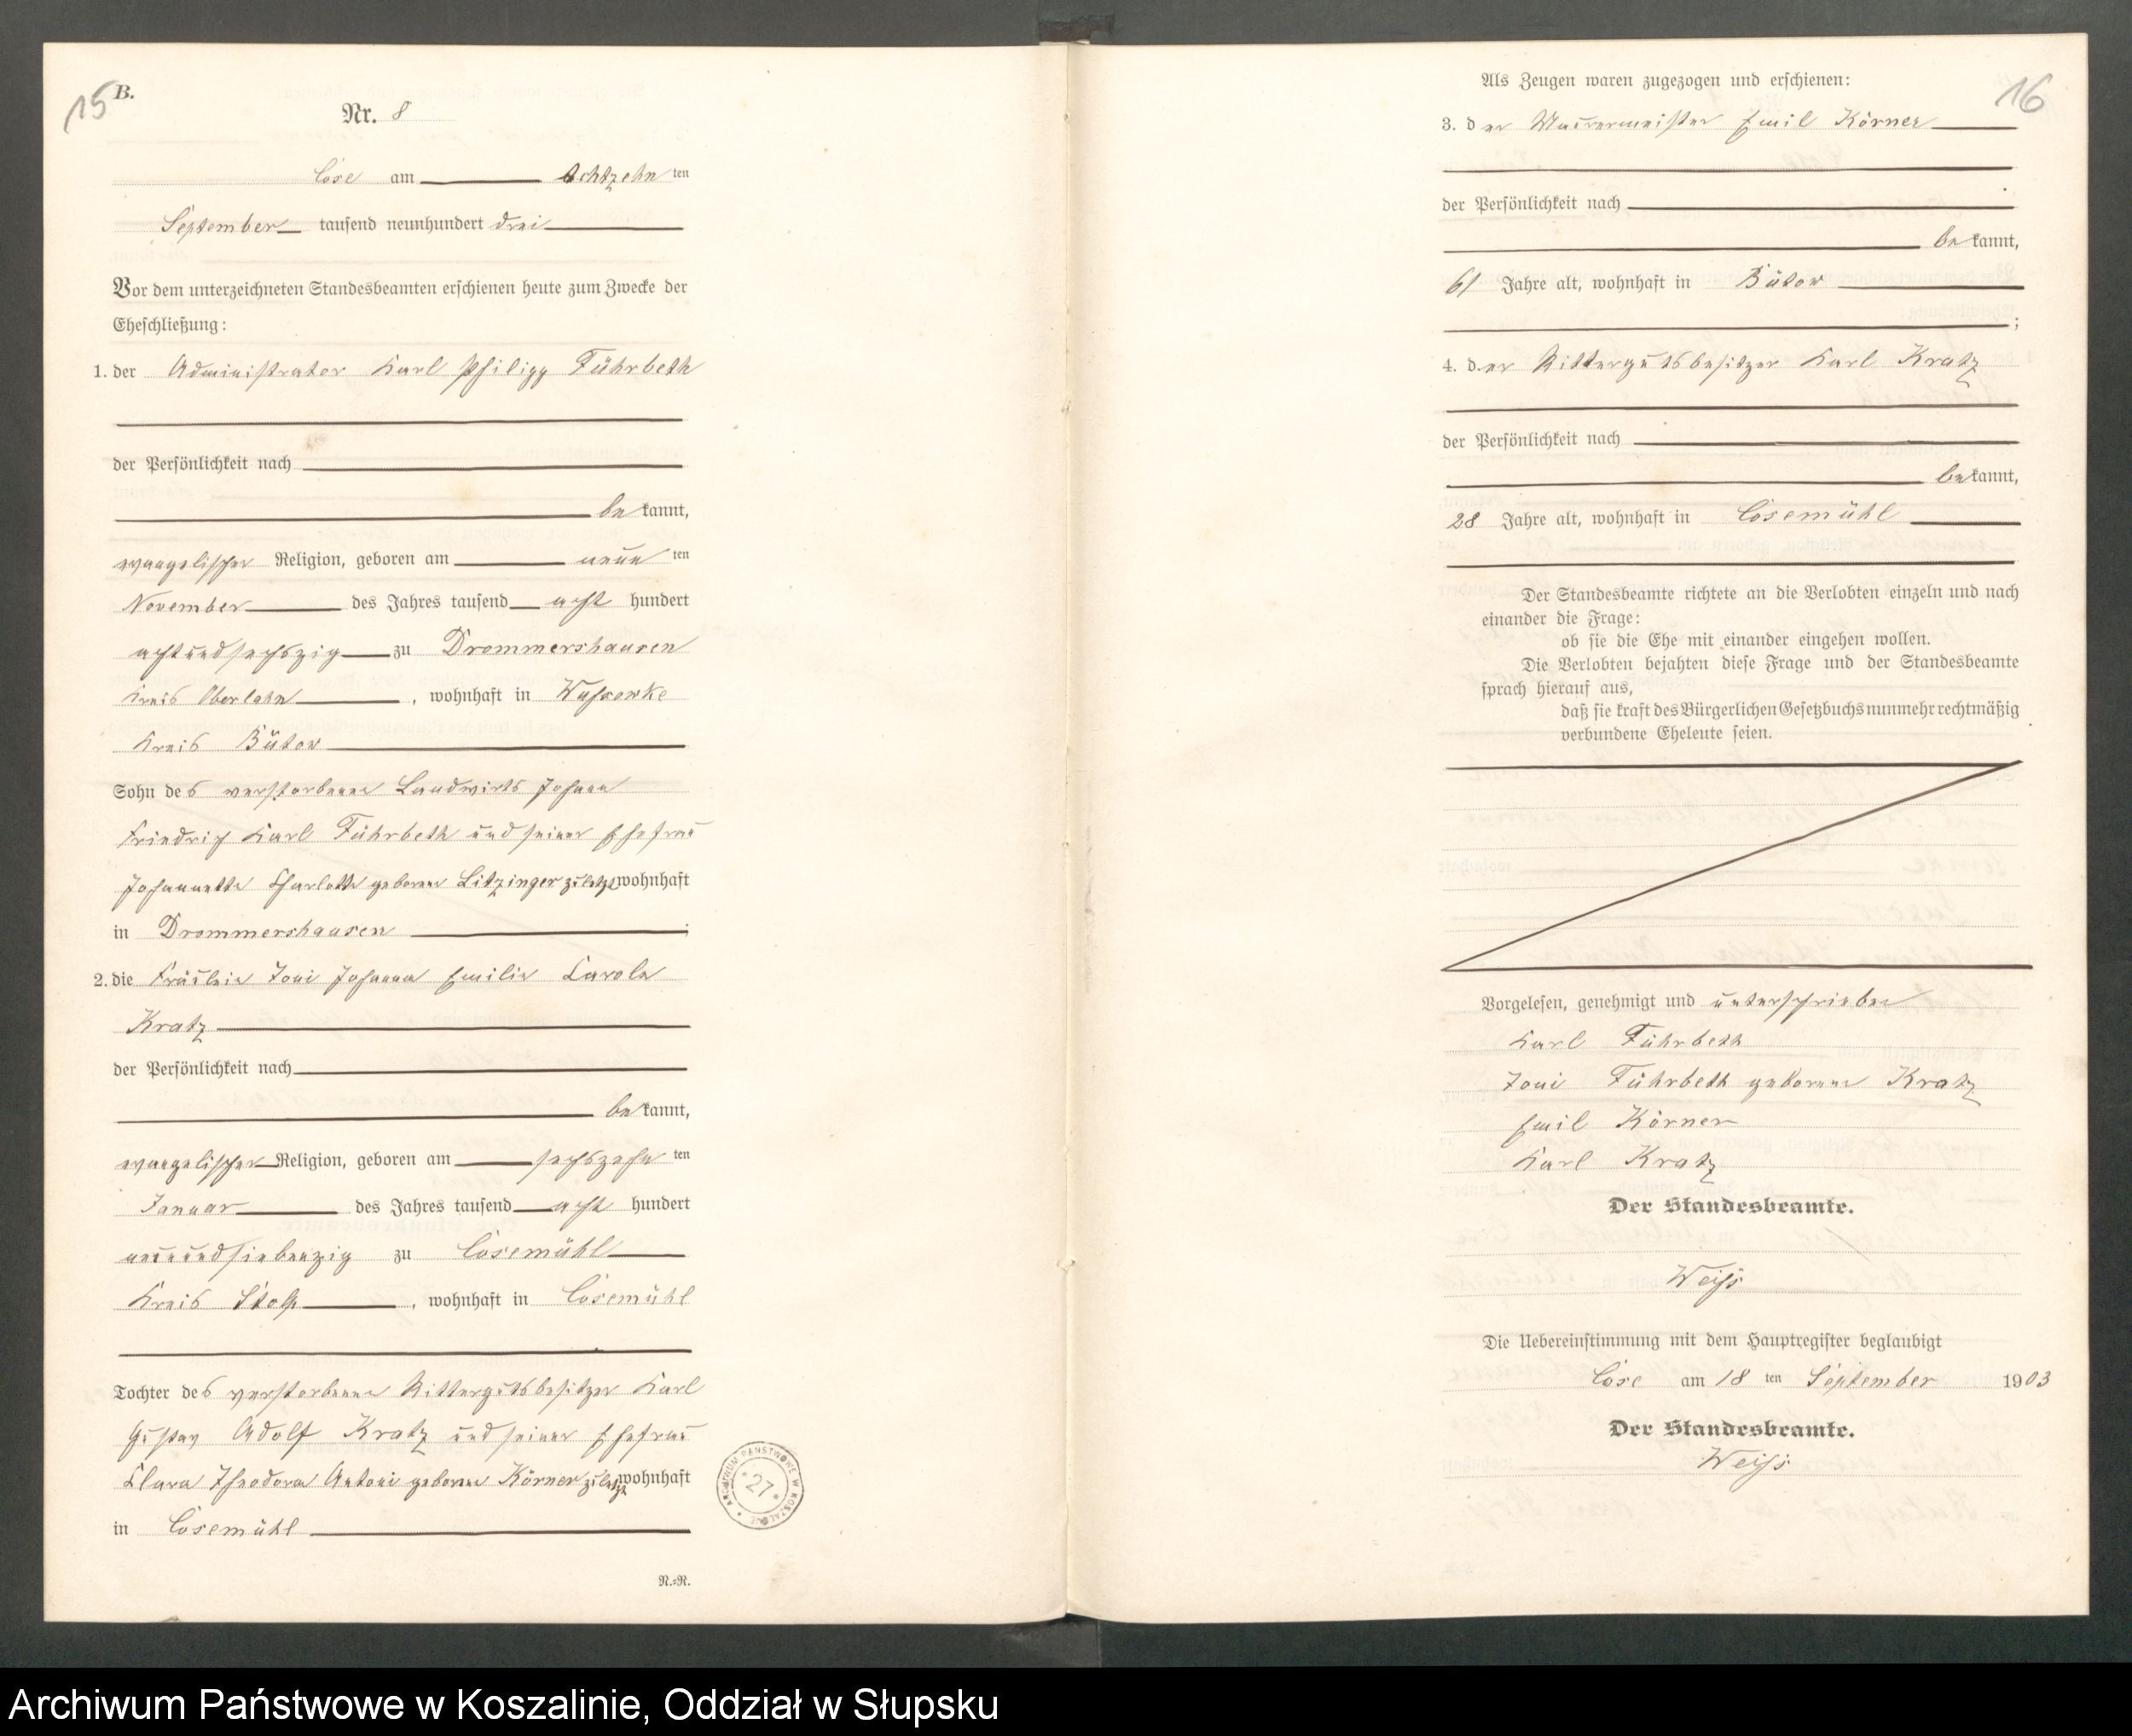 15
B.
Nr. 8
Cose am Achtzehn ten
September tausend neunhundert drei
Vor dem unterzeichneten Standesbeamten erschienen heute zum Zwecke der
Eheschließung:
1. der Administrator Karl Philipp Führbeth
der Persönlichkeit nach
be kannt,
evangelischer Religion, geboren am neun ten
November des Jahres tausend acht hundert
achtundsechszig zu Drommershausen
Kreis Oberlahn, wohnhaft in Wussowke
Kreis Bütow
Sohn des verstorbenen Landwirts Johann
Friedrich Karl Führbeth und seiner Ehefrau
Johannette Charlotte geborene Litzinger zuletzt wohnhaft
in Drommershausen;
2. die Fräulein Toni Johanna Emilie Carole
Kratz
der Persönlichkeit nach
be kannt,
evangelischer Religion, geboren am sechszehn ten
Januar des Jahres tausend acht hundert
neunundsiebenzig zu Cosemühl
Kreis Stolp, wohnhaft in Cosemühl
Tochter des verstorbenen Rittergutsbesitzer Karl
Gustav Adolf Kratz und seiner Ehefrau
Clara Theodora Antoni geborene Körner zuletzt wohnhaft
in Cosemühl
N.=R.
ARCHIWUM PAŃSTWOWE W KOSZALINIE
* 27 *
16
Als Zeugen waren zugezogen und erschienen:
3. der Maurermeister Emil Körner
der Persönlichkeit nach
be kannt,
61 Jahre alt, wohnhaft in Bütow
;
4. der Rittergutsbesitzer Karl Kratz
der Persönlichkeit nach
be kannt,
28 Jahre alt, wohnhaft in Cosemühl
Der Standesbeamte richtete an die Verlobten einzeln und nach
einander die Frage:
ob sie die Ehe mit einander eingehen wollen.
Die Verlobten bejahten diese Frage und der Standesbeamte
sprach hierauf aus,
daß sie kraft des Bürgerlichen Gesetzbuchs nunmehr rechtmäßig
verbundene Eheleute seien.
Vorgelesen, genehmigt und unterschrieben
Karl Führbeth
Toni Führbeth geborene Kratz
Emil Körner
Karl Kratz
Der Standesbeamte.
Weiss
Die Uebereinstimmung mit dem Hauptregister beglaubigt
Cose am 18 ten September 1903
Der Standesbeamte.
Weiss
Archiwum Państwowe w Koszalinie, Oddział w Słupsku